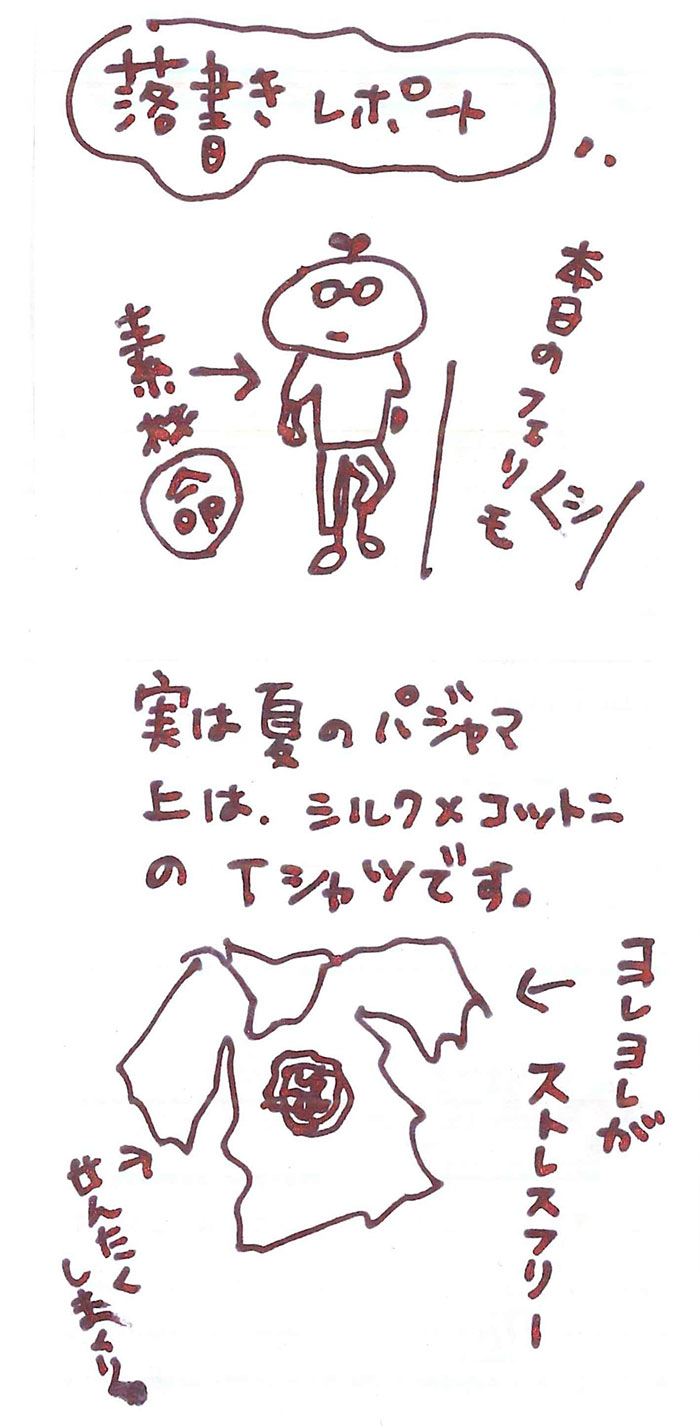 落書きレポート
本日のフェリモ
素材
命
実は夏のパジャマ
上は、ミルク×コットン
のTシャツです。
ヨレヨレが
ストレスフリー
せんたく
しまくり